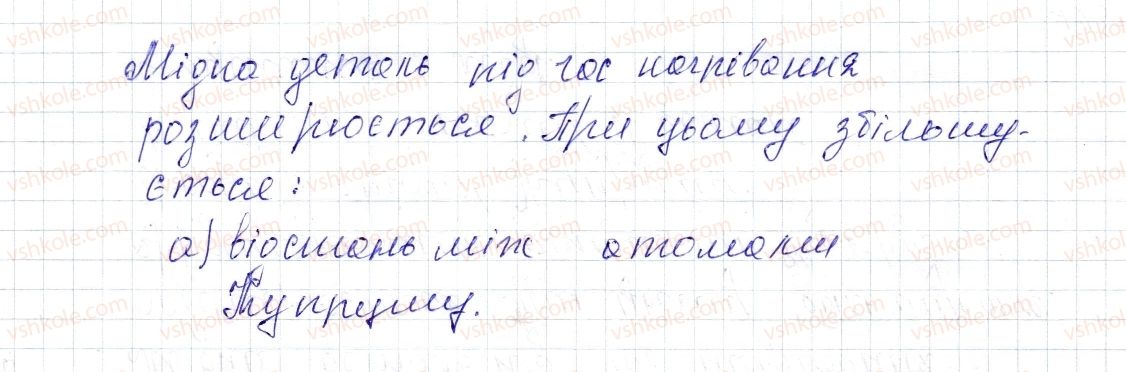 Мідна деталь під час нагрівання
розширюється. При цьому збільшу-
ється:
а) відстань між атомами
Купруму.